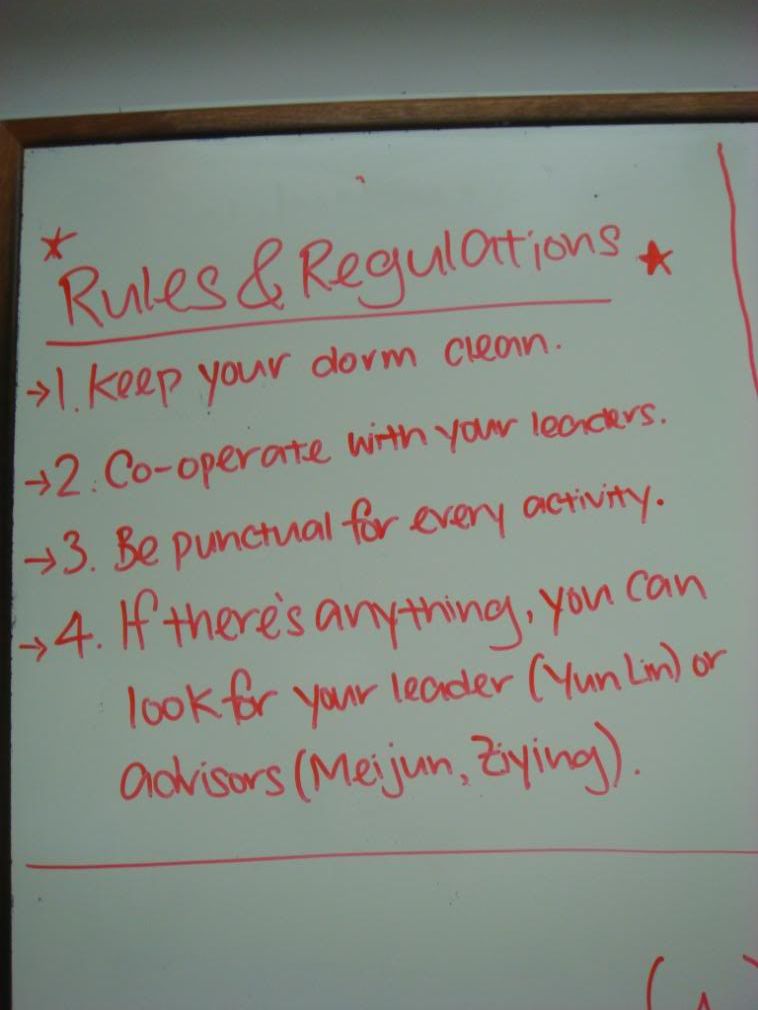 ★ Rules & Regulations ★
→1. Keep your dorm clean.
→2. Co-operate with your leaders.
→3. Be punctual for every activity.
→4. If there's anything, you can
look for your leader (Yun Lin) or
advisors (Meijun, Ziying).